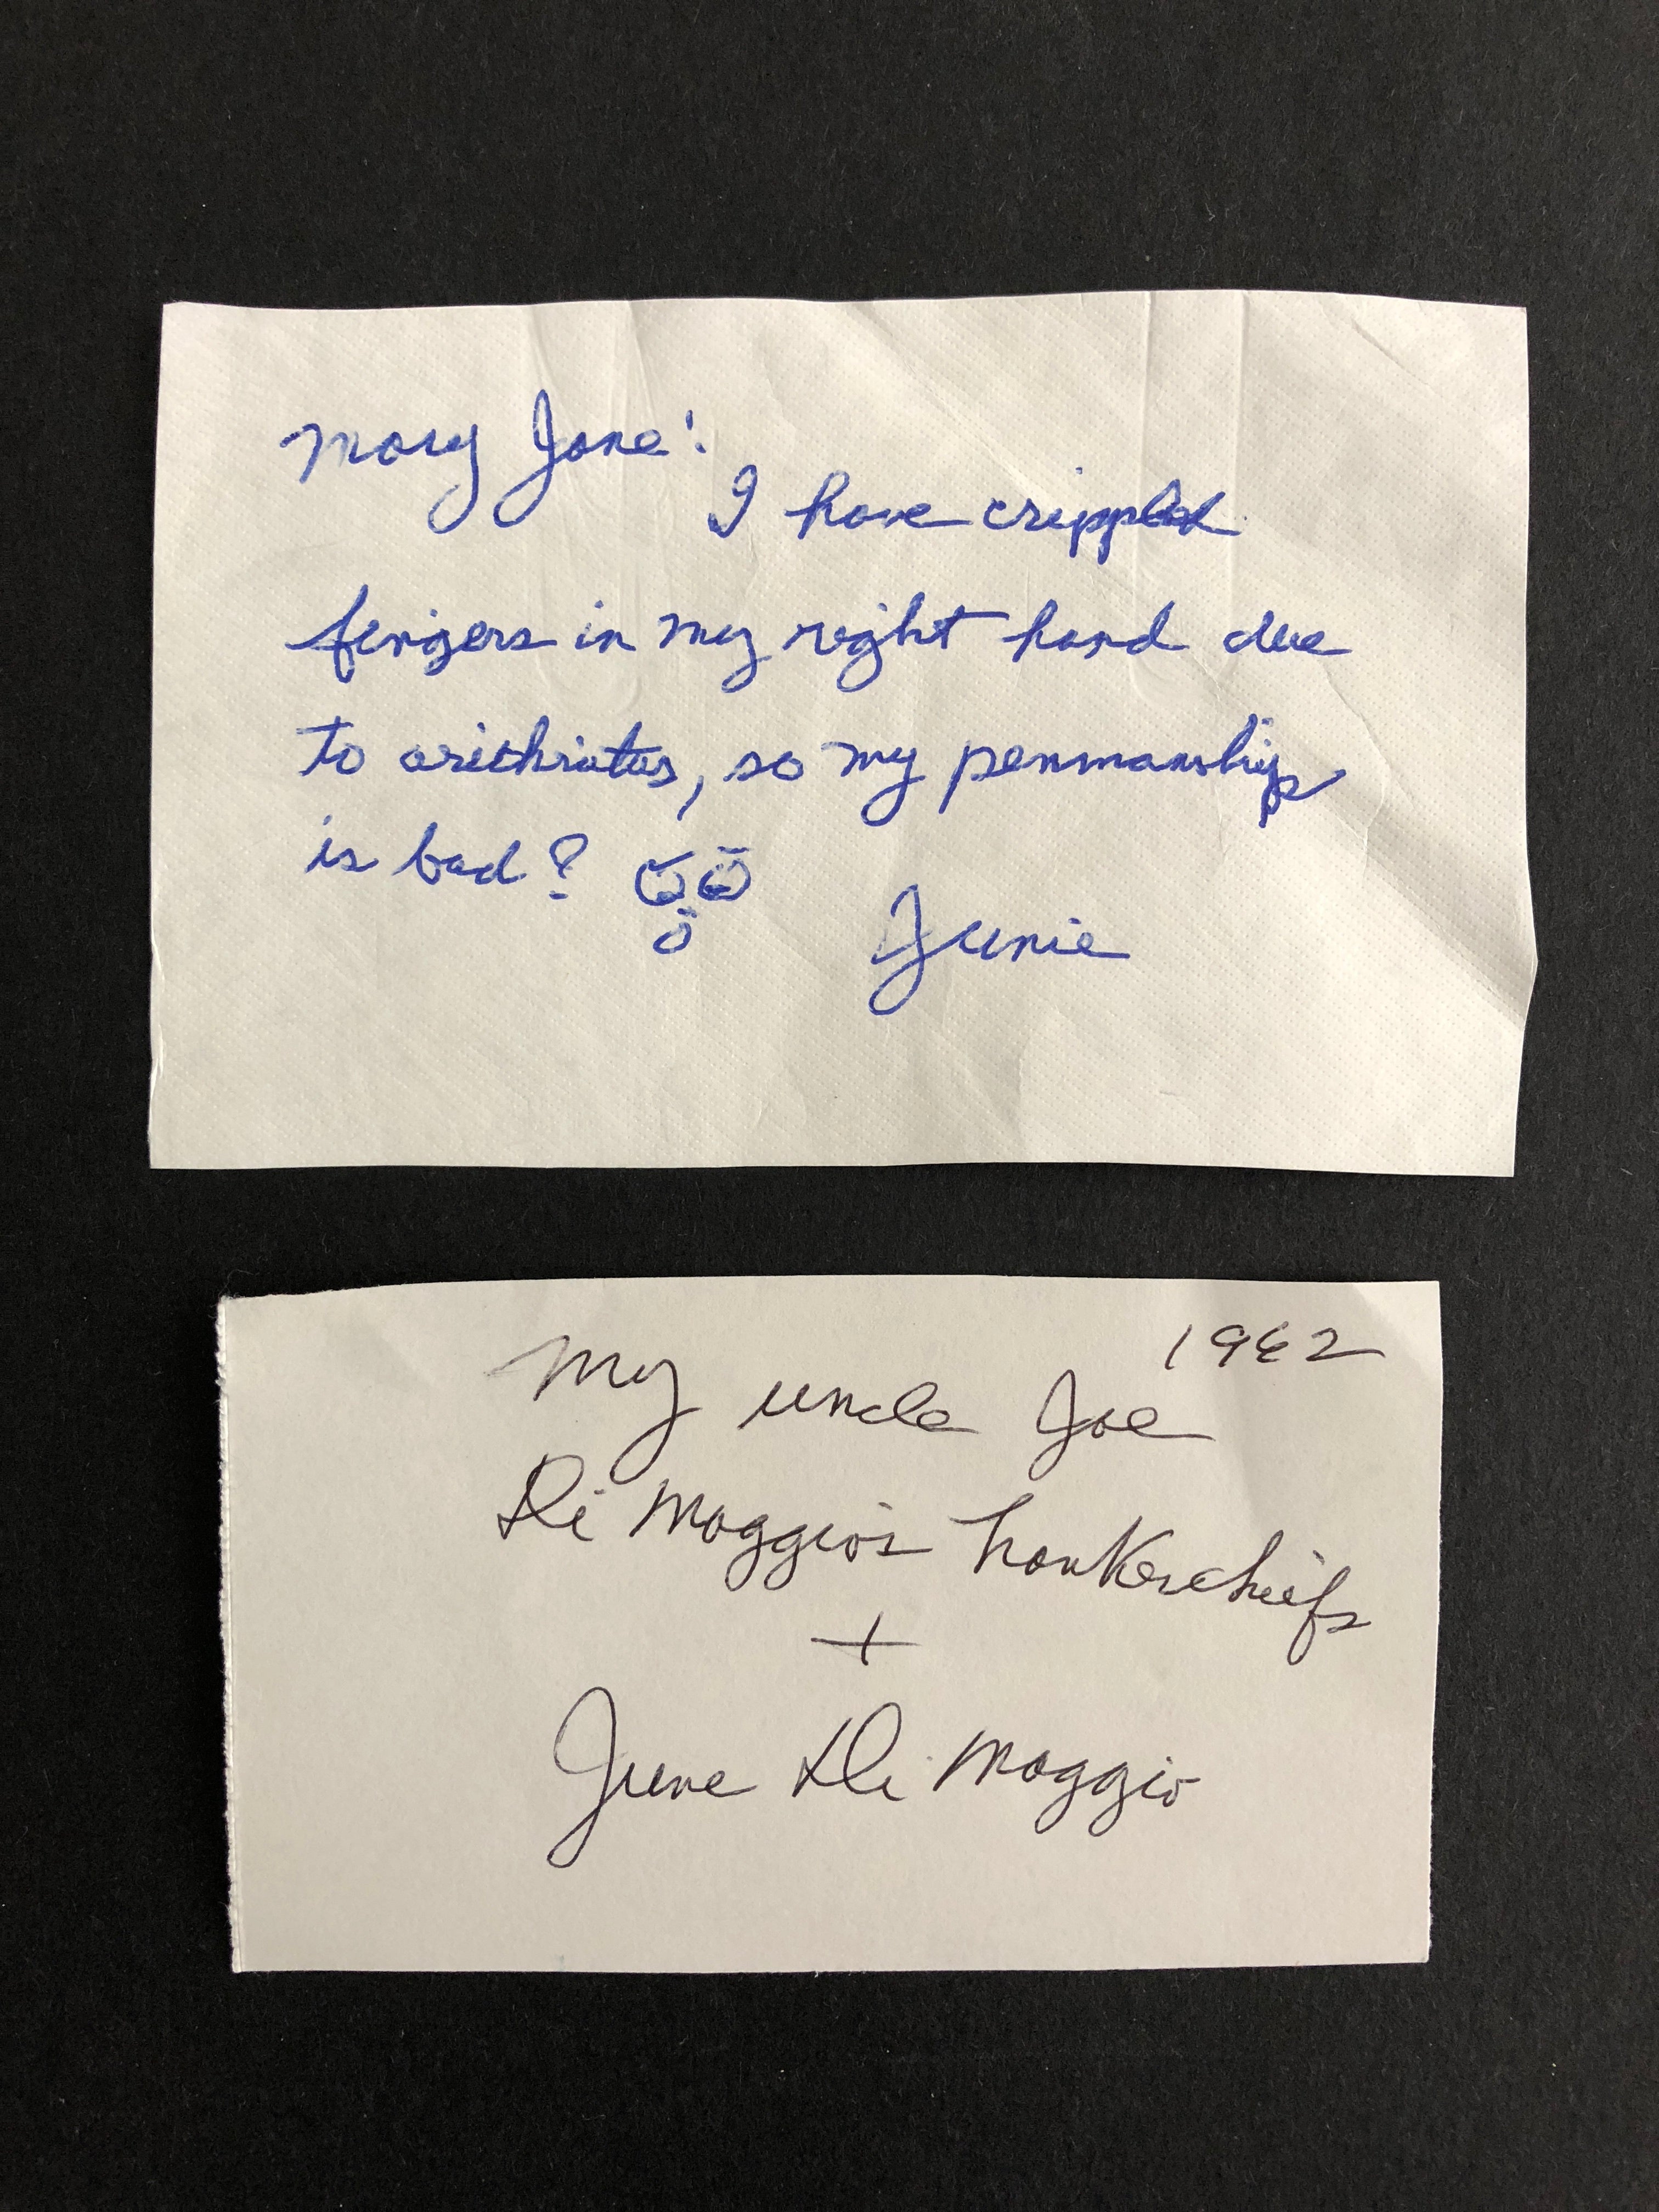 Mary Jane:
I have crippled
fingers in my right hand due
to
, so my penmanship
is bad?
Junie
1962
My uncle Joe
Di Maggio's hankerchiefs
+
June Di Maggio